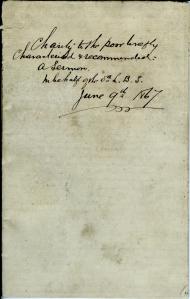 Charity to the poor briefly
Characterized & recommended:
A Sermon.
In behalf of the L. B. S.
June 9th 1867